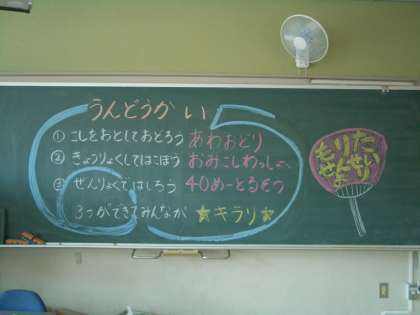 うんどうかい
① こしをおとしておどろう あわおどり
② きょうりょくしてはこぼう おみこしわっしょい
③ ぜんりょくではしろう 40めーとるそう
3つができてみんなが ★キラリ★
もりた
せんせい